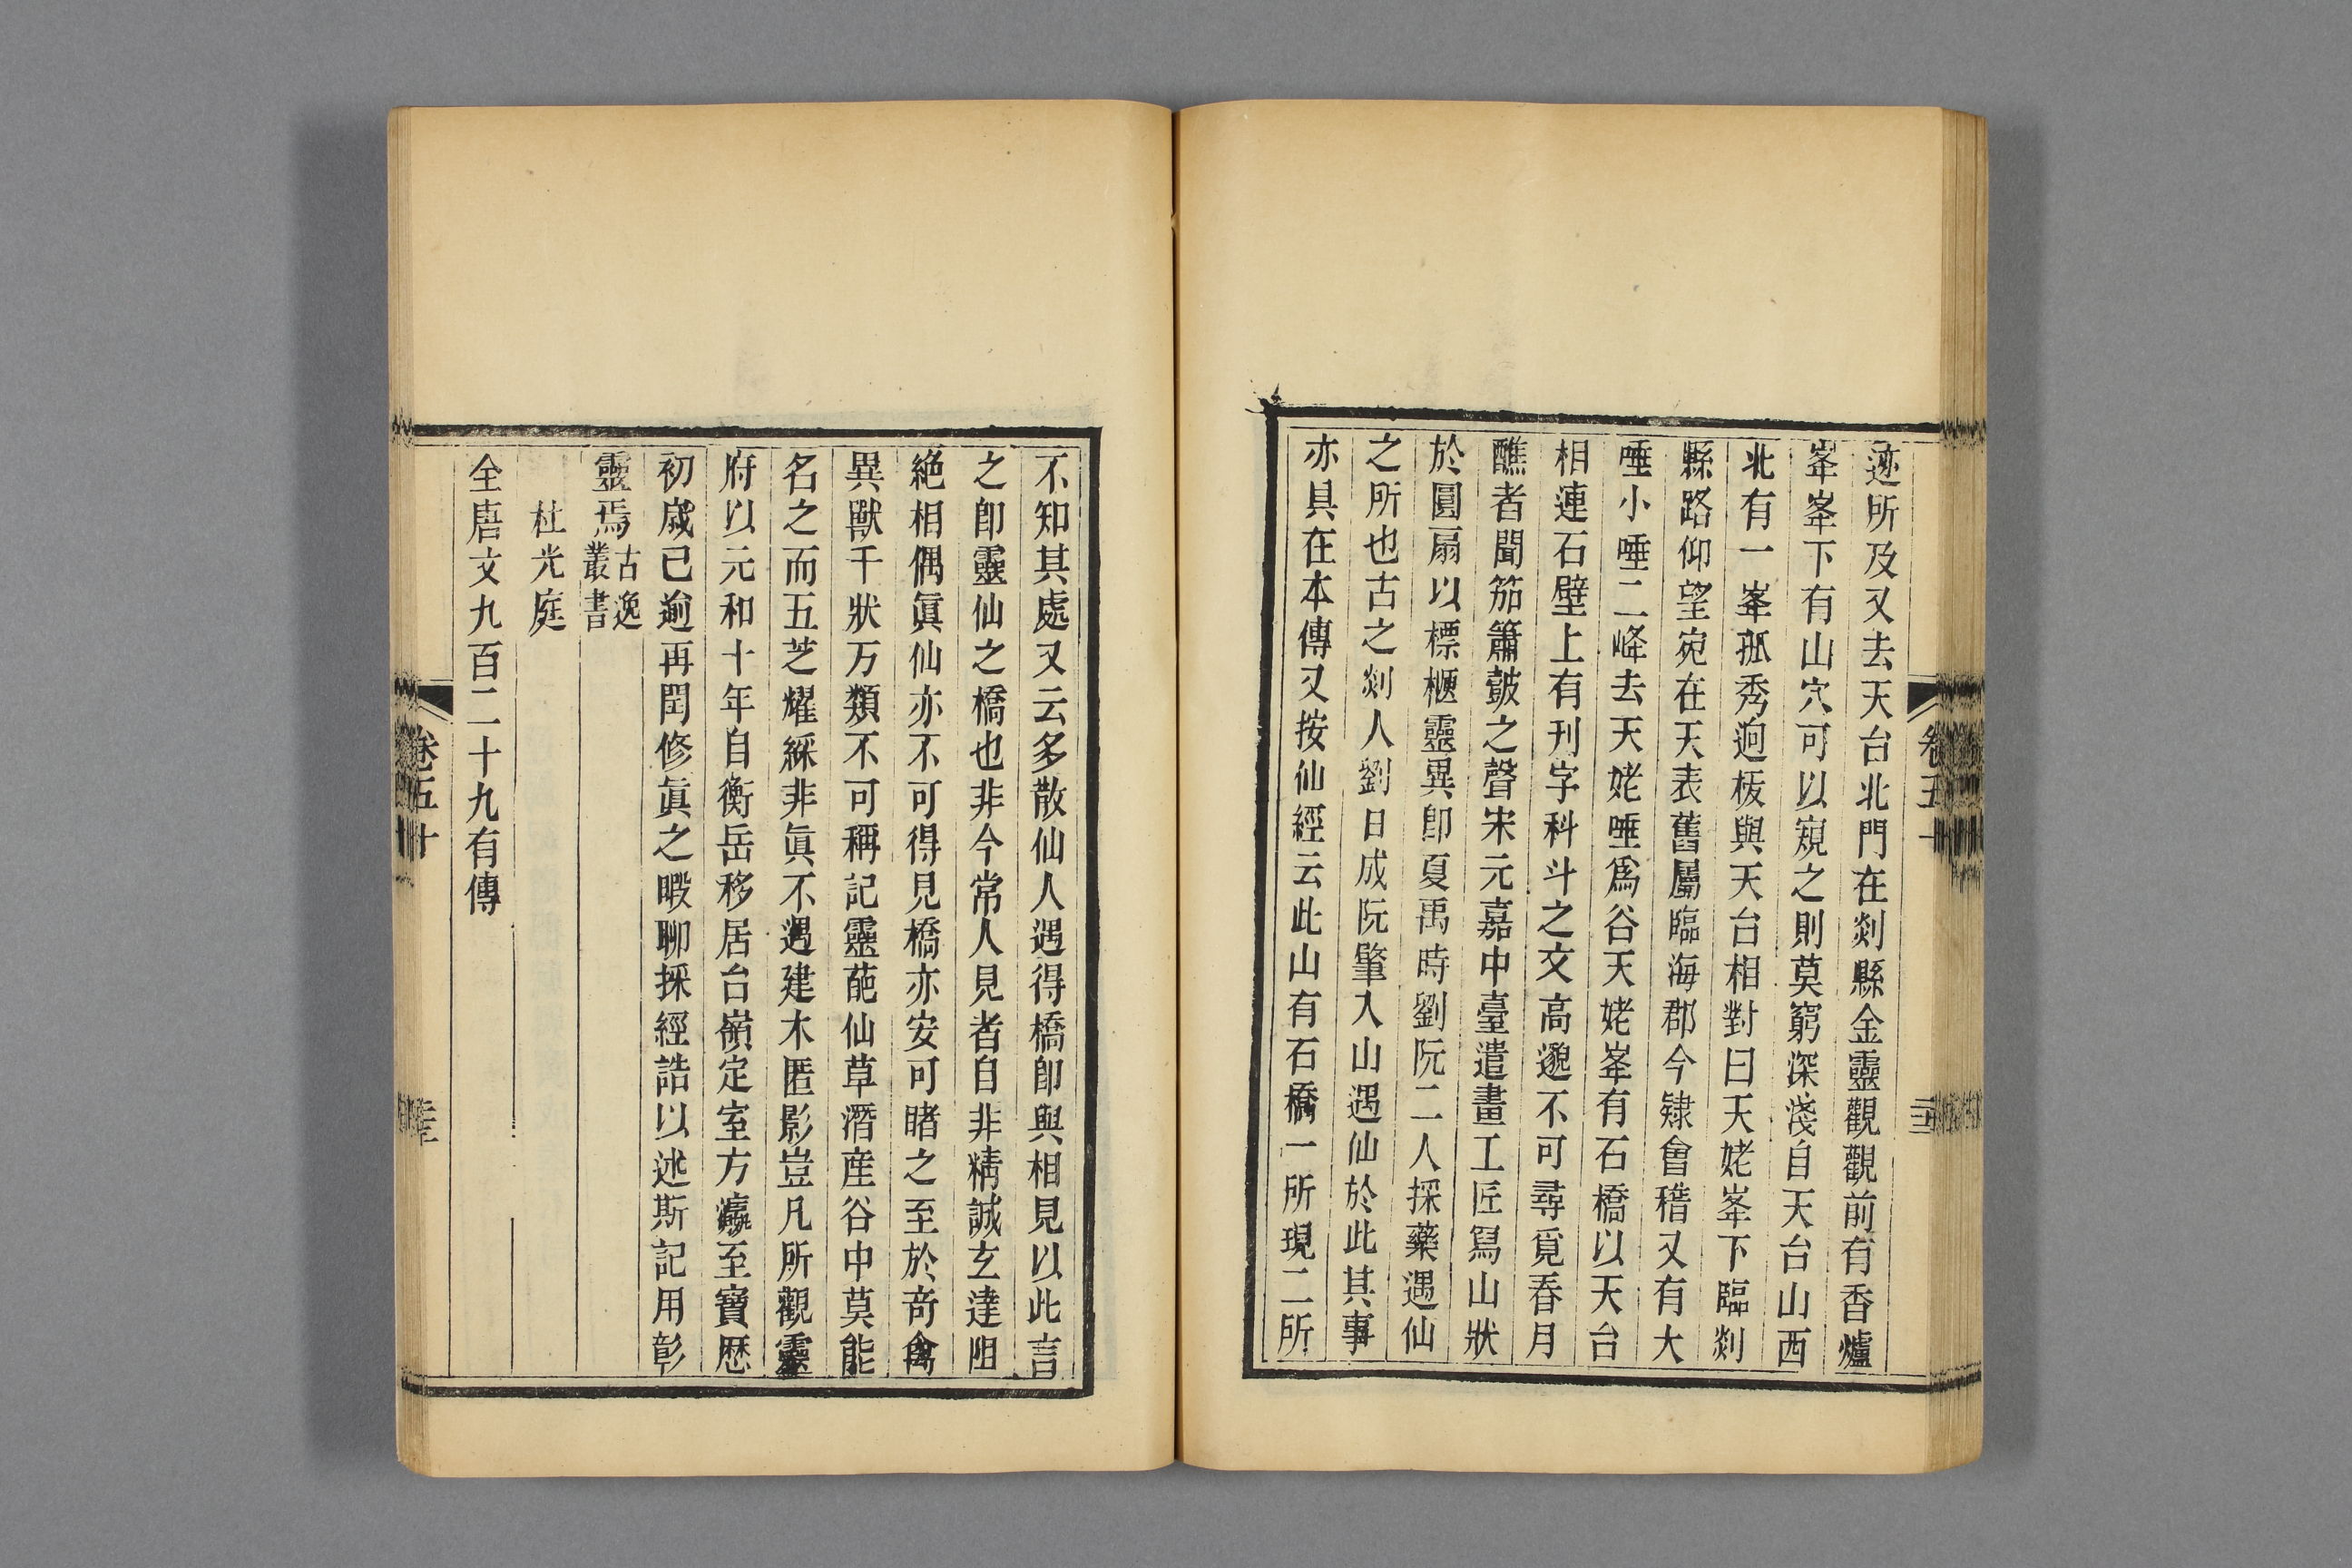 迹所及又去天台北門在剡縣金靈觀觀前有香爐
峯峯下有山穴可以窺之則莫窮深淺自天台山西
北有一峯孤秀迥㧞與天台相對曰天姥峯下臨剡
縣路仰望宛在天表舊屬臨海郡今隸會稽又有大
唾小唾二峰去天姥唾爲谷天姥峯有石橋以天台
相連石壁上有刊字科斗之文高邈不可尋覓春月
醮者聞笳簫皷之聲宋元嘉中臺遣畫工匠寫山狀
於圓扇以標櫃靈異卽夏禹時劉阮二人採藥遇仙
之所也古之剡人劉日成阮肇入山遇仙於此其事
亦具在本傳又按仙經云此山有石橋一所現二所
卷五十
不知其處又云多散仙人遇得橋卽與相見以此言
之卽靈仙之橋也非今常人見者自非精誠玄達阻
絶相偶眞仙亦不可得見橋亦安可睹之至於奇禽
異獸千狀万類不可稱記靈葩仙草潛産谷中莫能
名之而五芝耀綵非眞不遇建木匿影豈凡所觀靈
府以元和十年自衡岳移居台嶺定室方瀛至寶歷
初歲已逾再閏修眞之暇聊採經誥以述斯記用彰
靈焉古逸
叢書
杜光庭
全唐文九百二十九有傳
卷五十